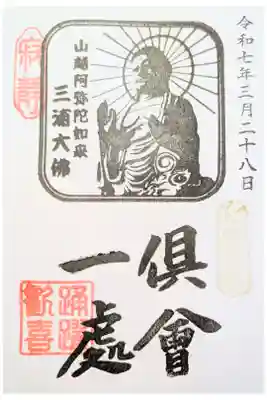 令和七年三月二十八日
山越阿弥陀如来
三浦大佛
倶會
一處
踊躍
歓喜